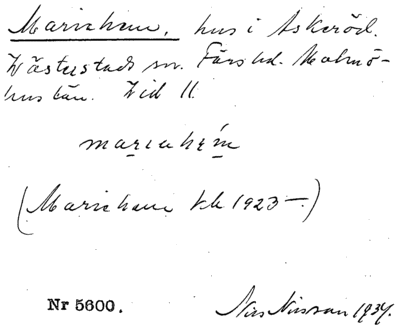 Mariehem, hus i Askeröd.
Västerstads sn. Färs hd. Malmö-
hus län. Vid 11.
mariahem
(Mariehem kk 1923 —)
Nr 5600.
Nils Nilsson 1934.